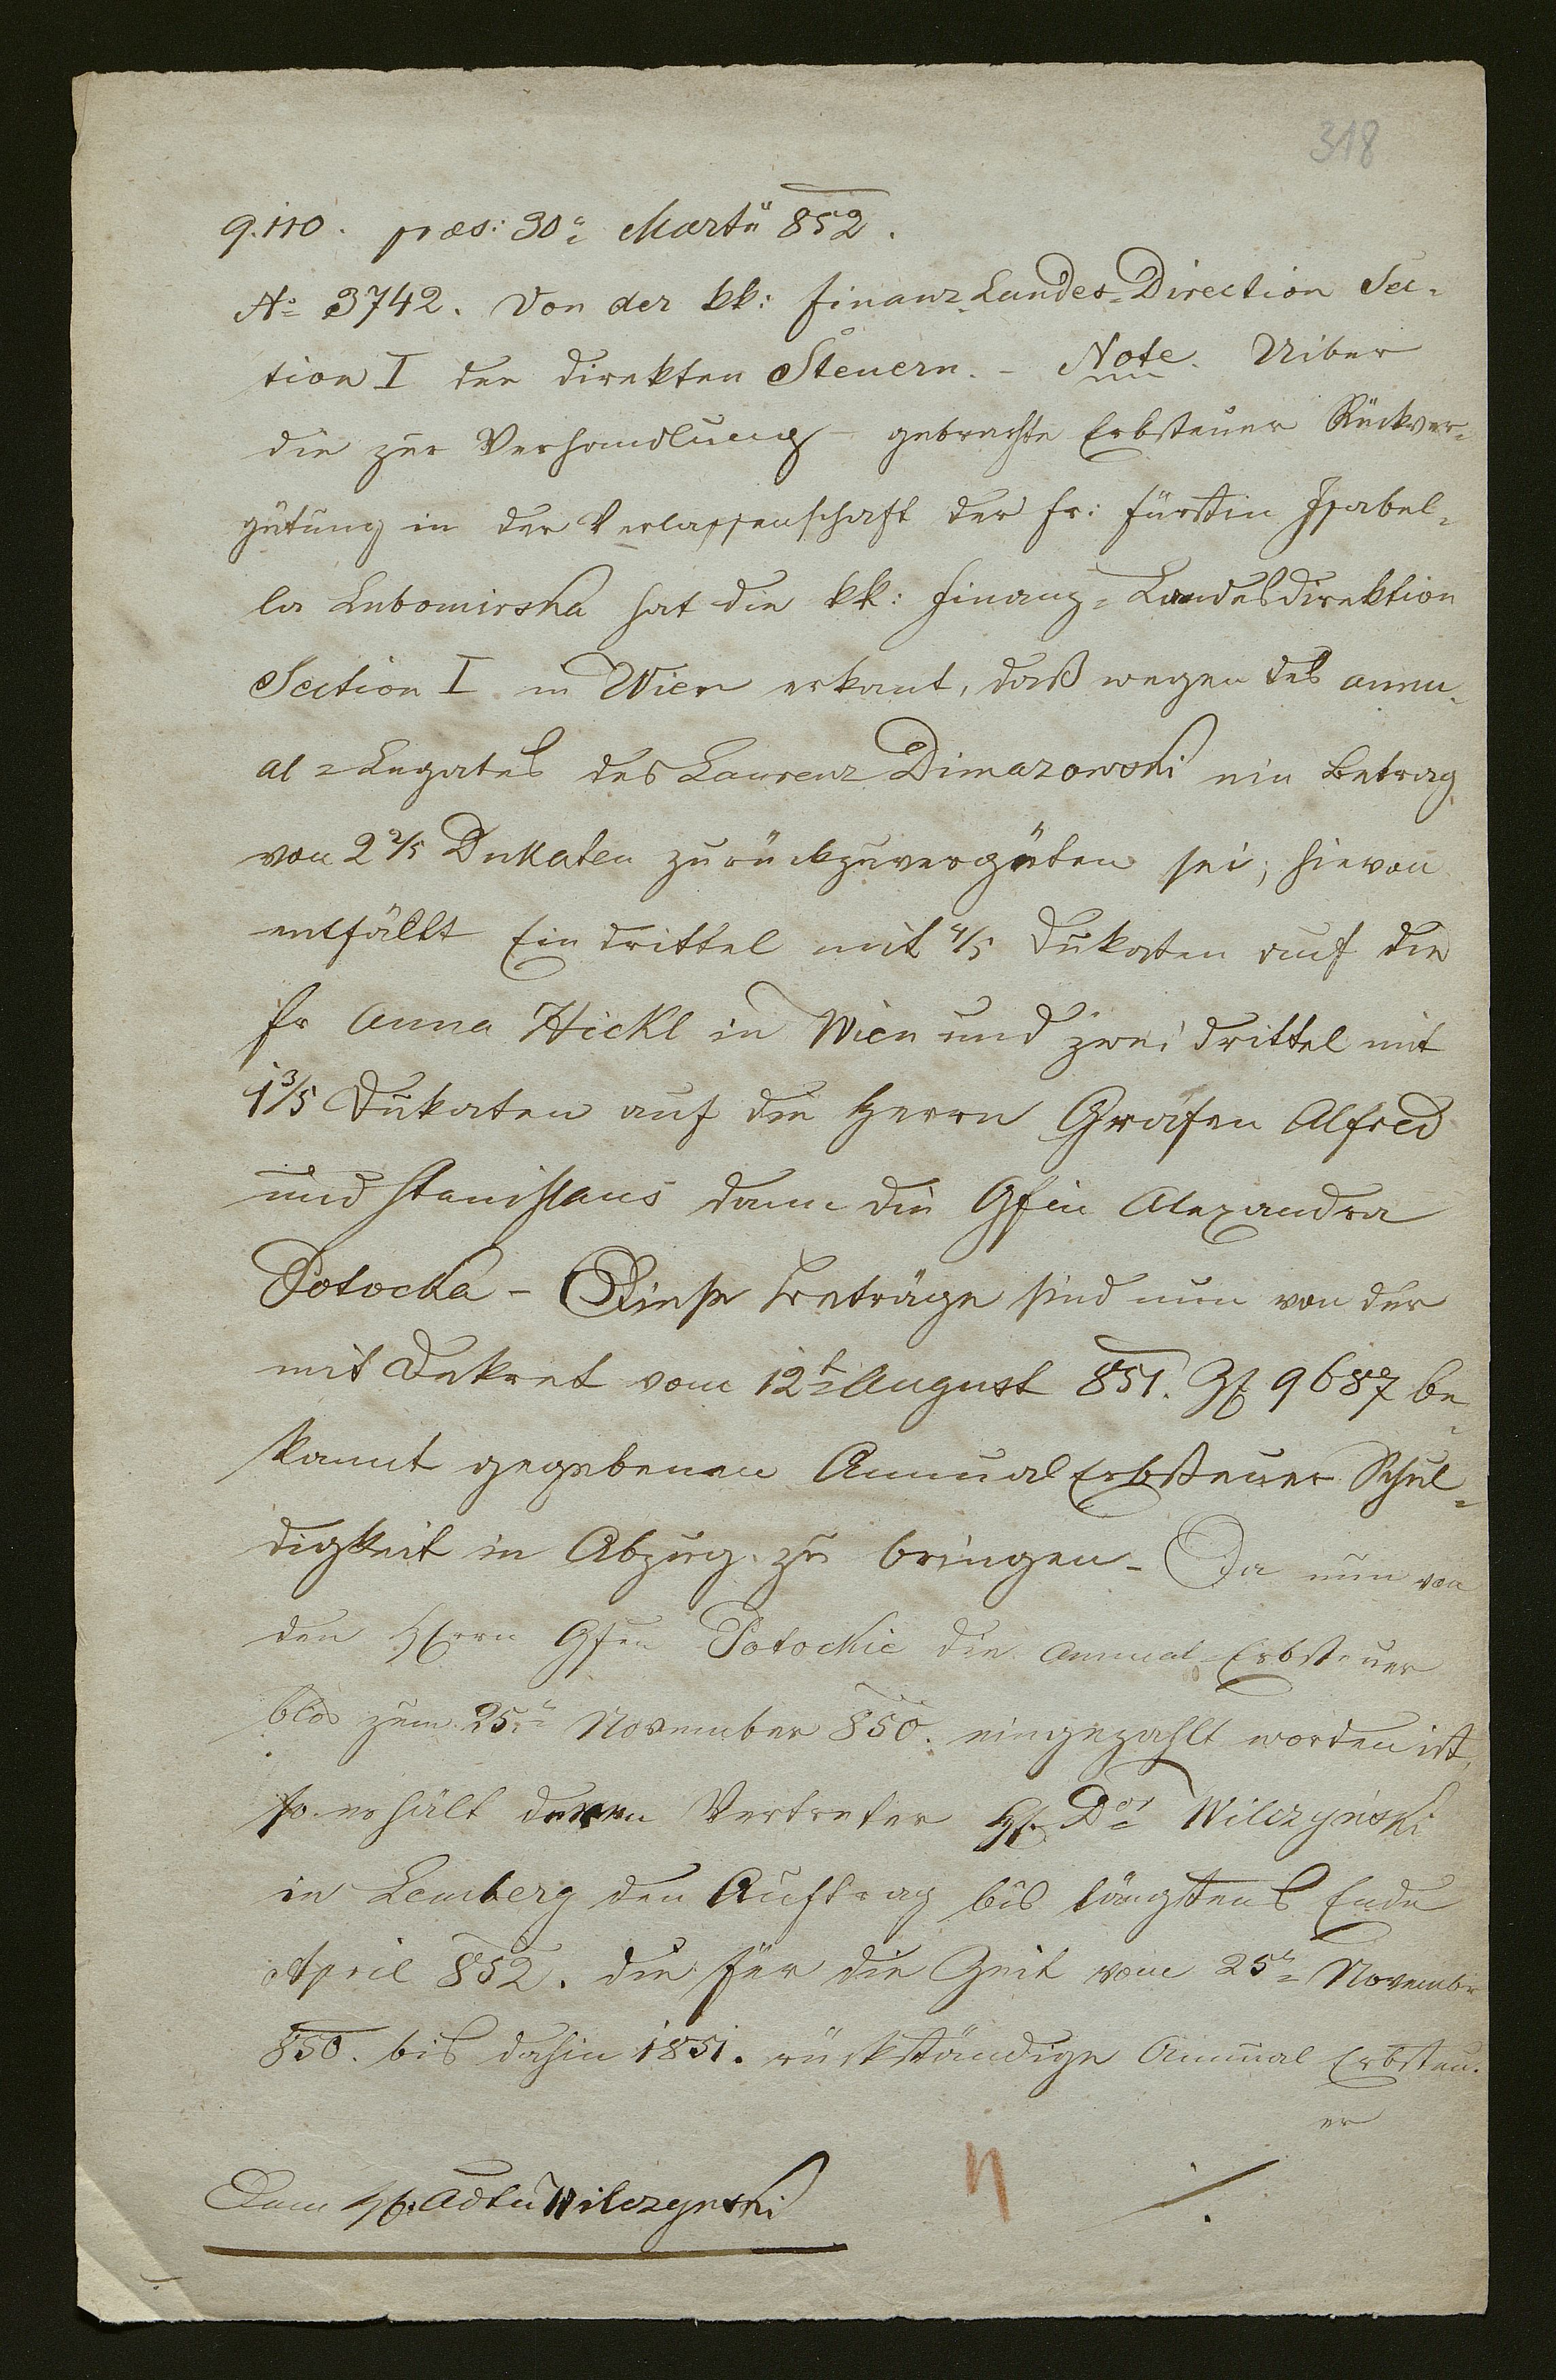 318
9.110. præs: 30a Martii 852.
No 3742. Von der kk: Finanz-Landes-Direction Sec-
tion I der direkten Steuern. - Note. Uiber
die zur Verhandlung gebrachte Erbsteuer Rückver-
gütung in der Verlassenschaft der Fr: Fürstin Isabel-
la Lubomirska hat die kk: Finanz-Landesdirektion
Section I in Wien erkant, daß wegen des annu-
al-Legates des Laurenz Dimazowski ein Betrag
von 2 2/5 Dukaten zurückzuvergüten sei; hievon
entfällt Ein drittel mit 4/5 Dukaten auf die
Fr Anna Hickl in Wien und zwei drittel mit
1 3/5 Dukaten auf die Herrn Grafen Alfred
und Stanislaus dann die Gfin Alexandra
Potocka - Diese Beträge sind nun von der
mit Dekret vom 12t August 851. Zl 9687 be-
kannt gegebenen Annual Erbsteuer Schul-
digkeit in Abzug zu bringen - Da nun von
den Herrn Gfen Potockie die Annual-Erbsteuer
blos zum 25t November 850. eingezahlt worden ist,
so erhält deren Vertreter H. Dor Wilczyński
in Lemberg den Auftrag bis längstens Ende
April 852. die für die Zeit vom 25t November
850. bis dahin 1851. rückständige Annual Erbsteu-
er
Dem H: Adten Wilczynski
./.